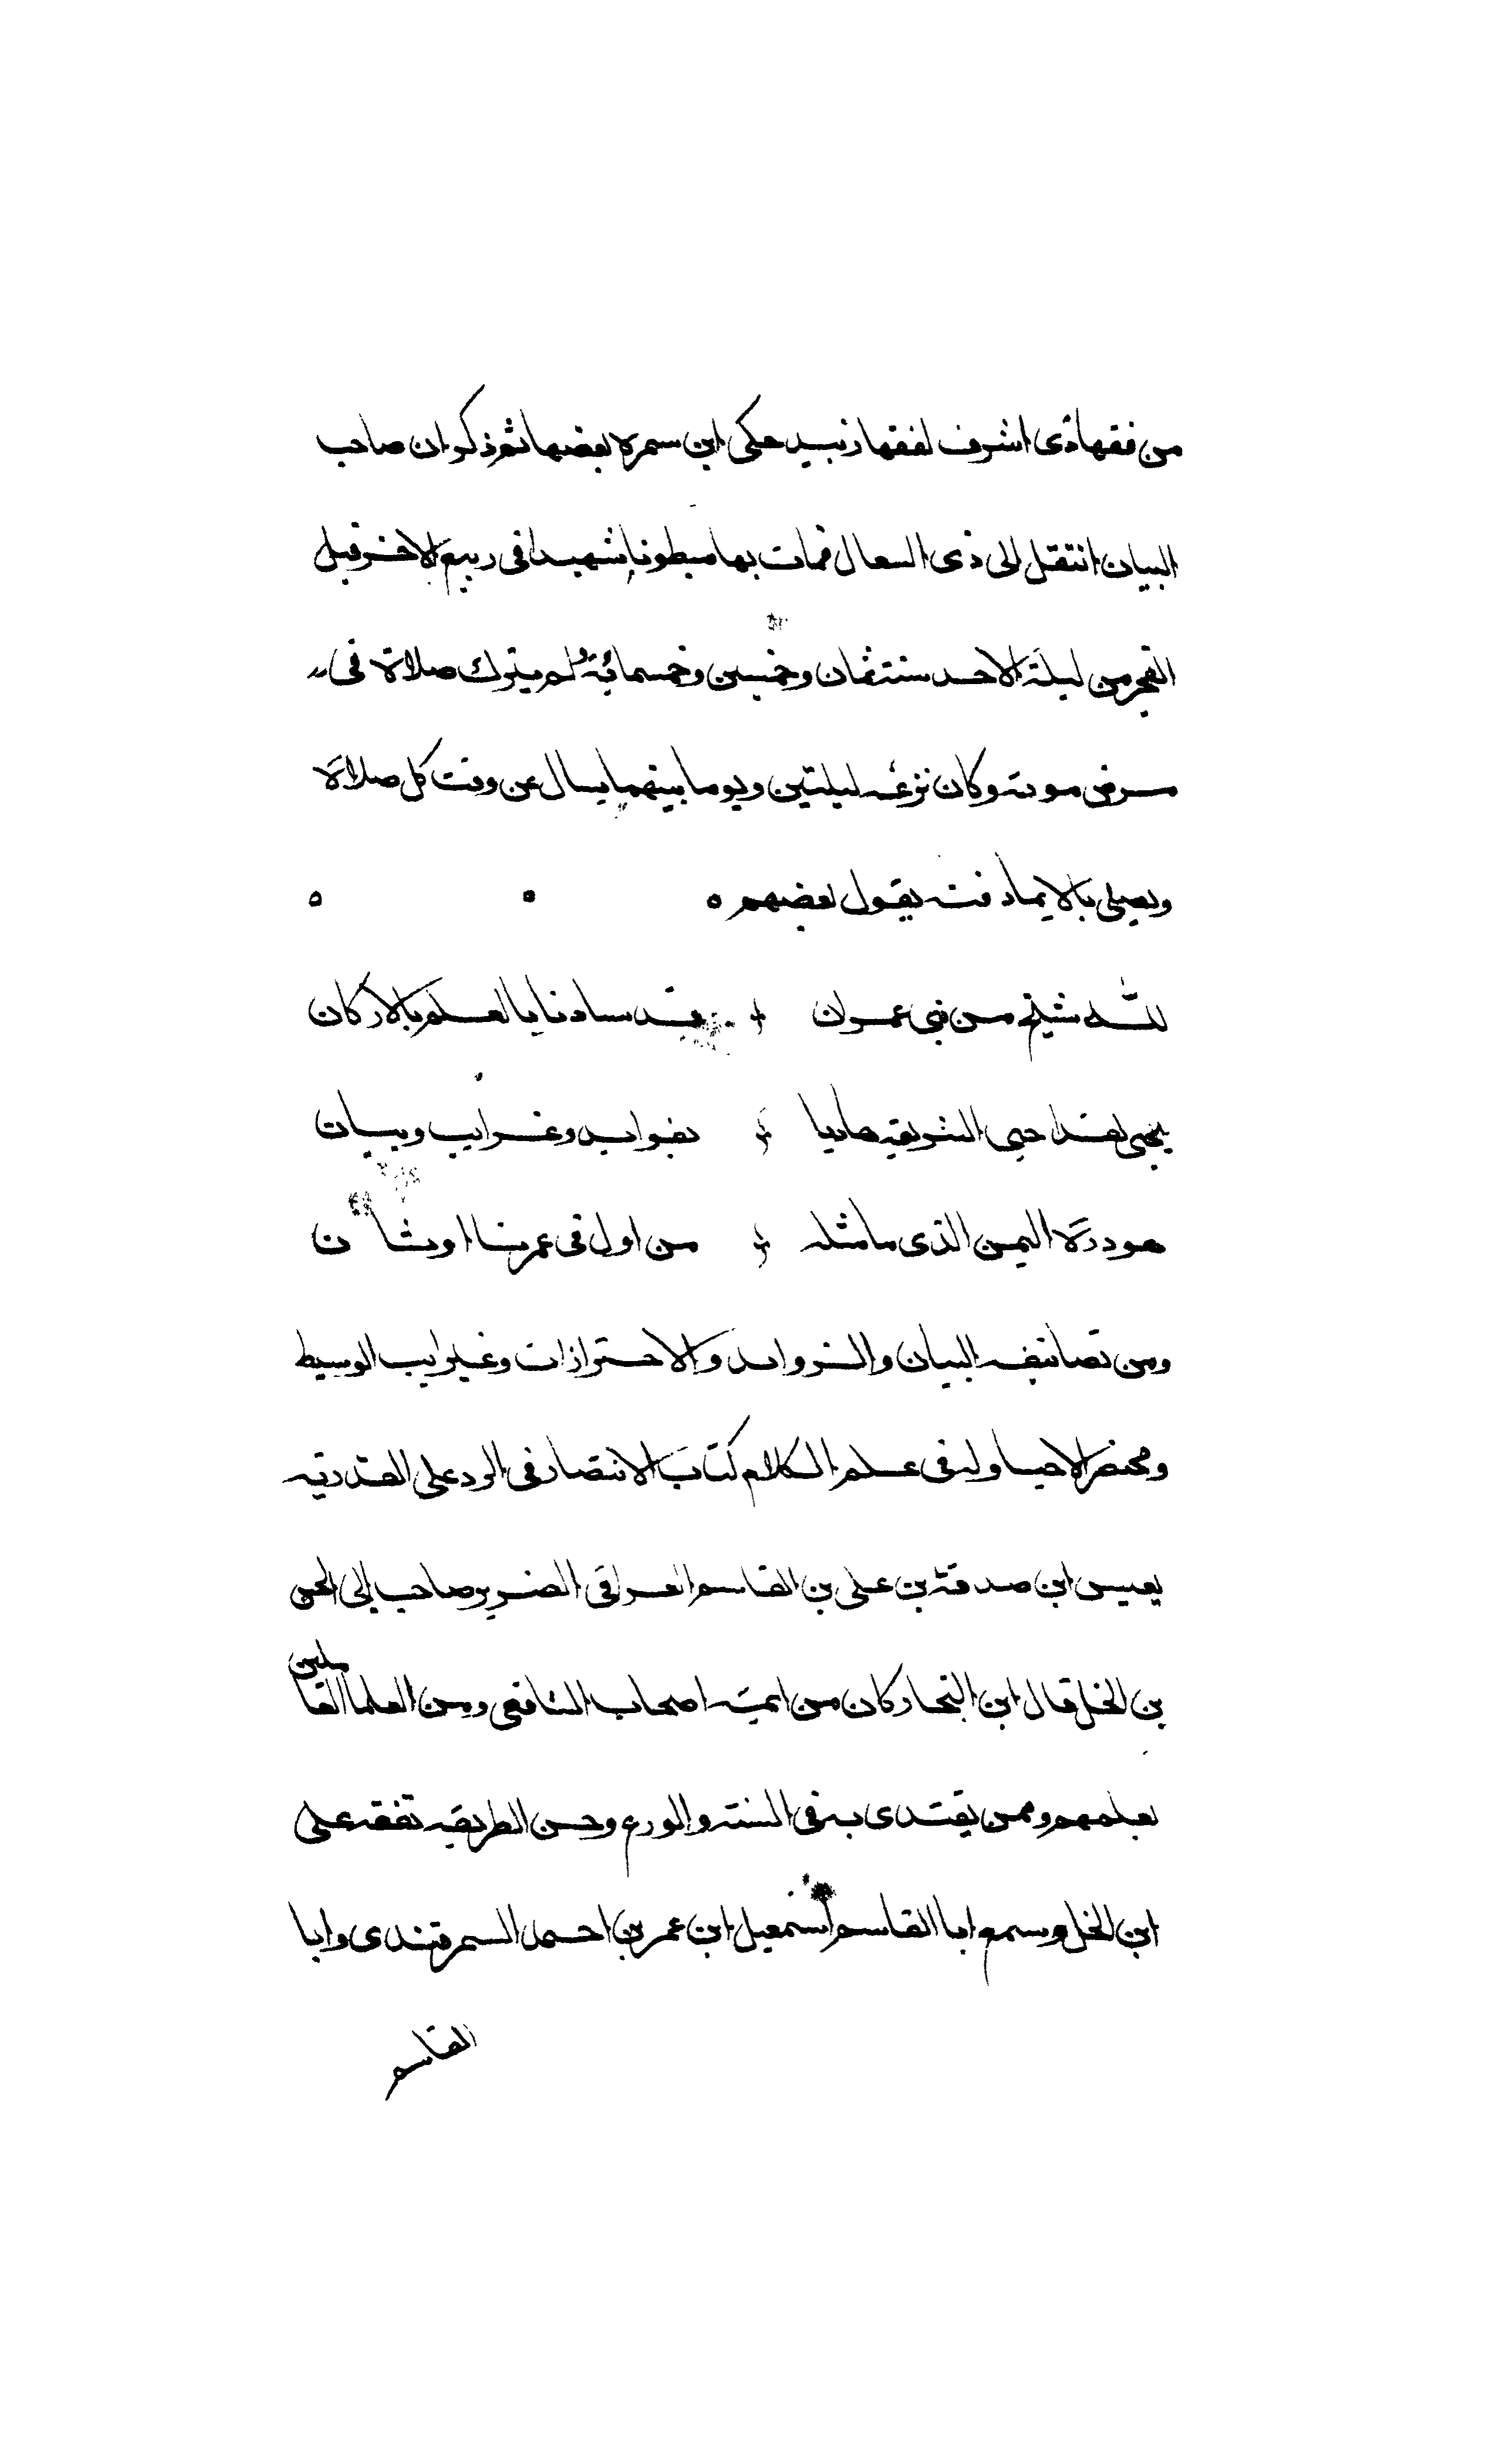 من فقهاذى اشرف لفقها زبيد حكى ابن سمره بعضها ثم ذكر ان صاحب
البيان انتقل الى ذى السعال فمات بها مبطونا شهيدا فى ربيع الاخر قبل
الفجر من ليلة الاحد سنة ثمان وخمسين وخمسمائة لم يترك صلاة فى
مرض موته وكان نزعه ليلتين ويوما بينهما يسال عن وقت كل صلاة
ويصلى بالايما وفيه يقول بعضهم ه
لله شيخ من بنى عمران قد ساد نايا العلم بالاركان
يحيى لقد احيى الشريعة هاديا بفوايد وغرايب وبيان
هو درة اليمن الذى ما مثله من اول فى عمرنا او ثان
ومن تصانيفه البيان والزوايد والاحترازات وغرايب الوسيط
ومختصر الاحيا وله فى علم الكلام كتاب الانتصار فى الرد على القدرية
يعيش ابن صدقة بن على بن القاسم العراقى الضرير صاحب ابى الحسن
بن الخل قال ابن النجار كان من ايمة اصحاب الشافعى ومن العلما القا ملين
بعلمهم وممن يقتدى به فى السنة والورع وحسن الطريقة تفقه على
ابن الخل وسمع ابا القاسم اسمعيل ابن عمر بن احمد السمرقندى وابا
القاسم